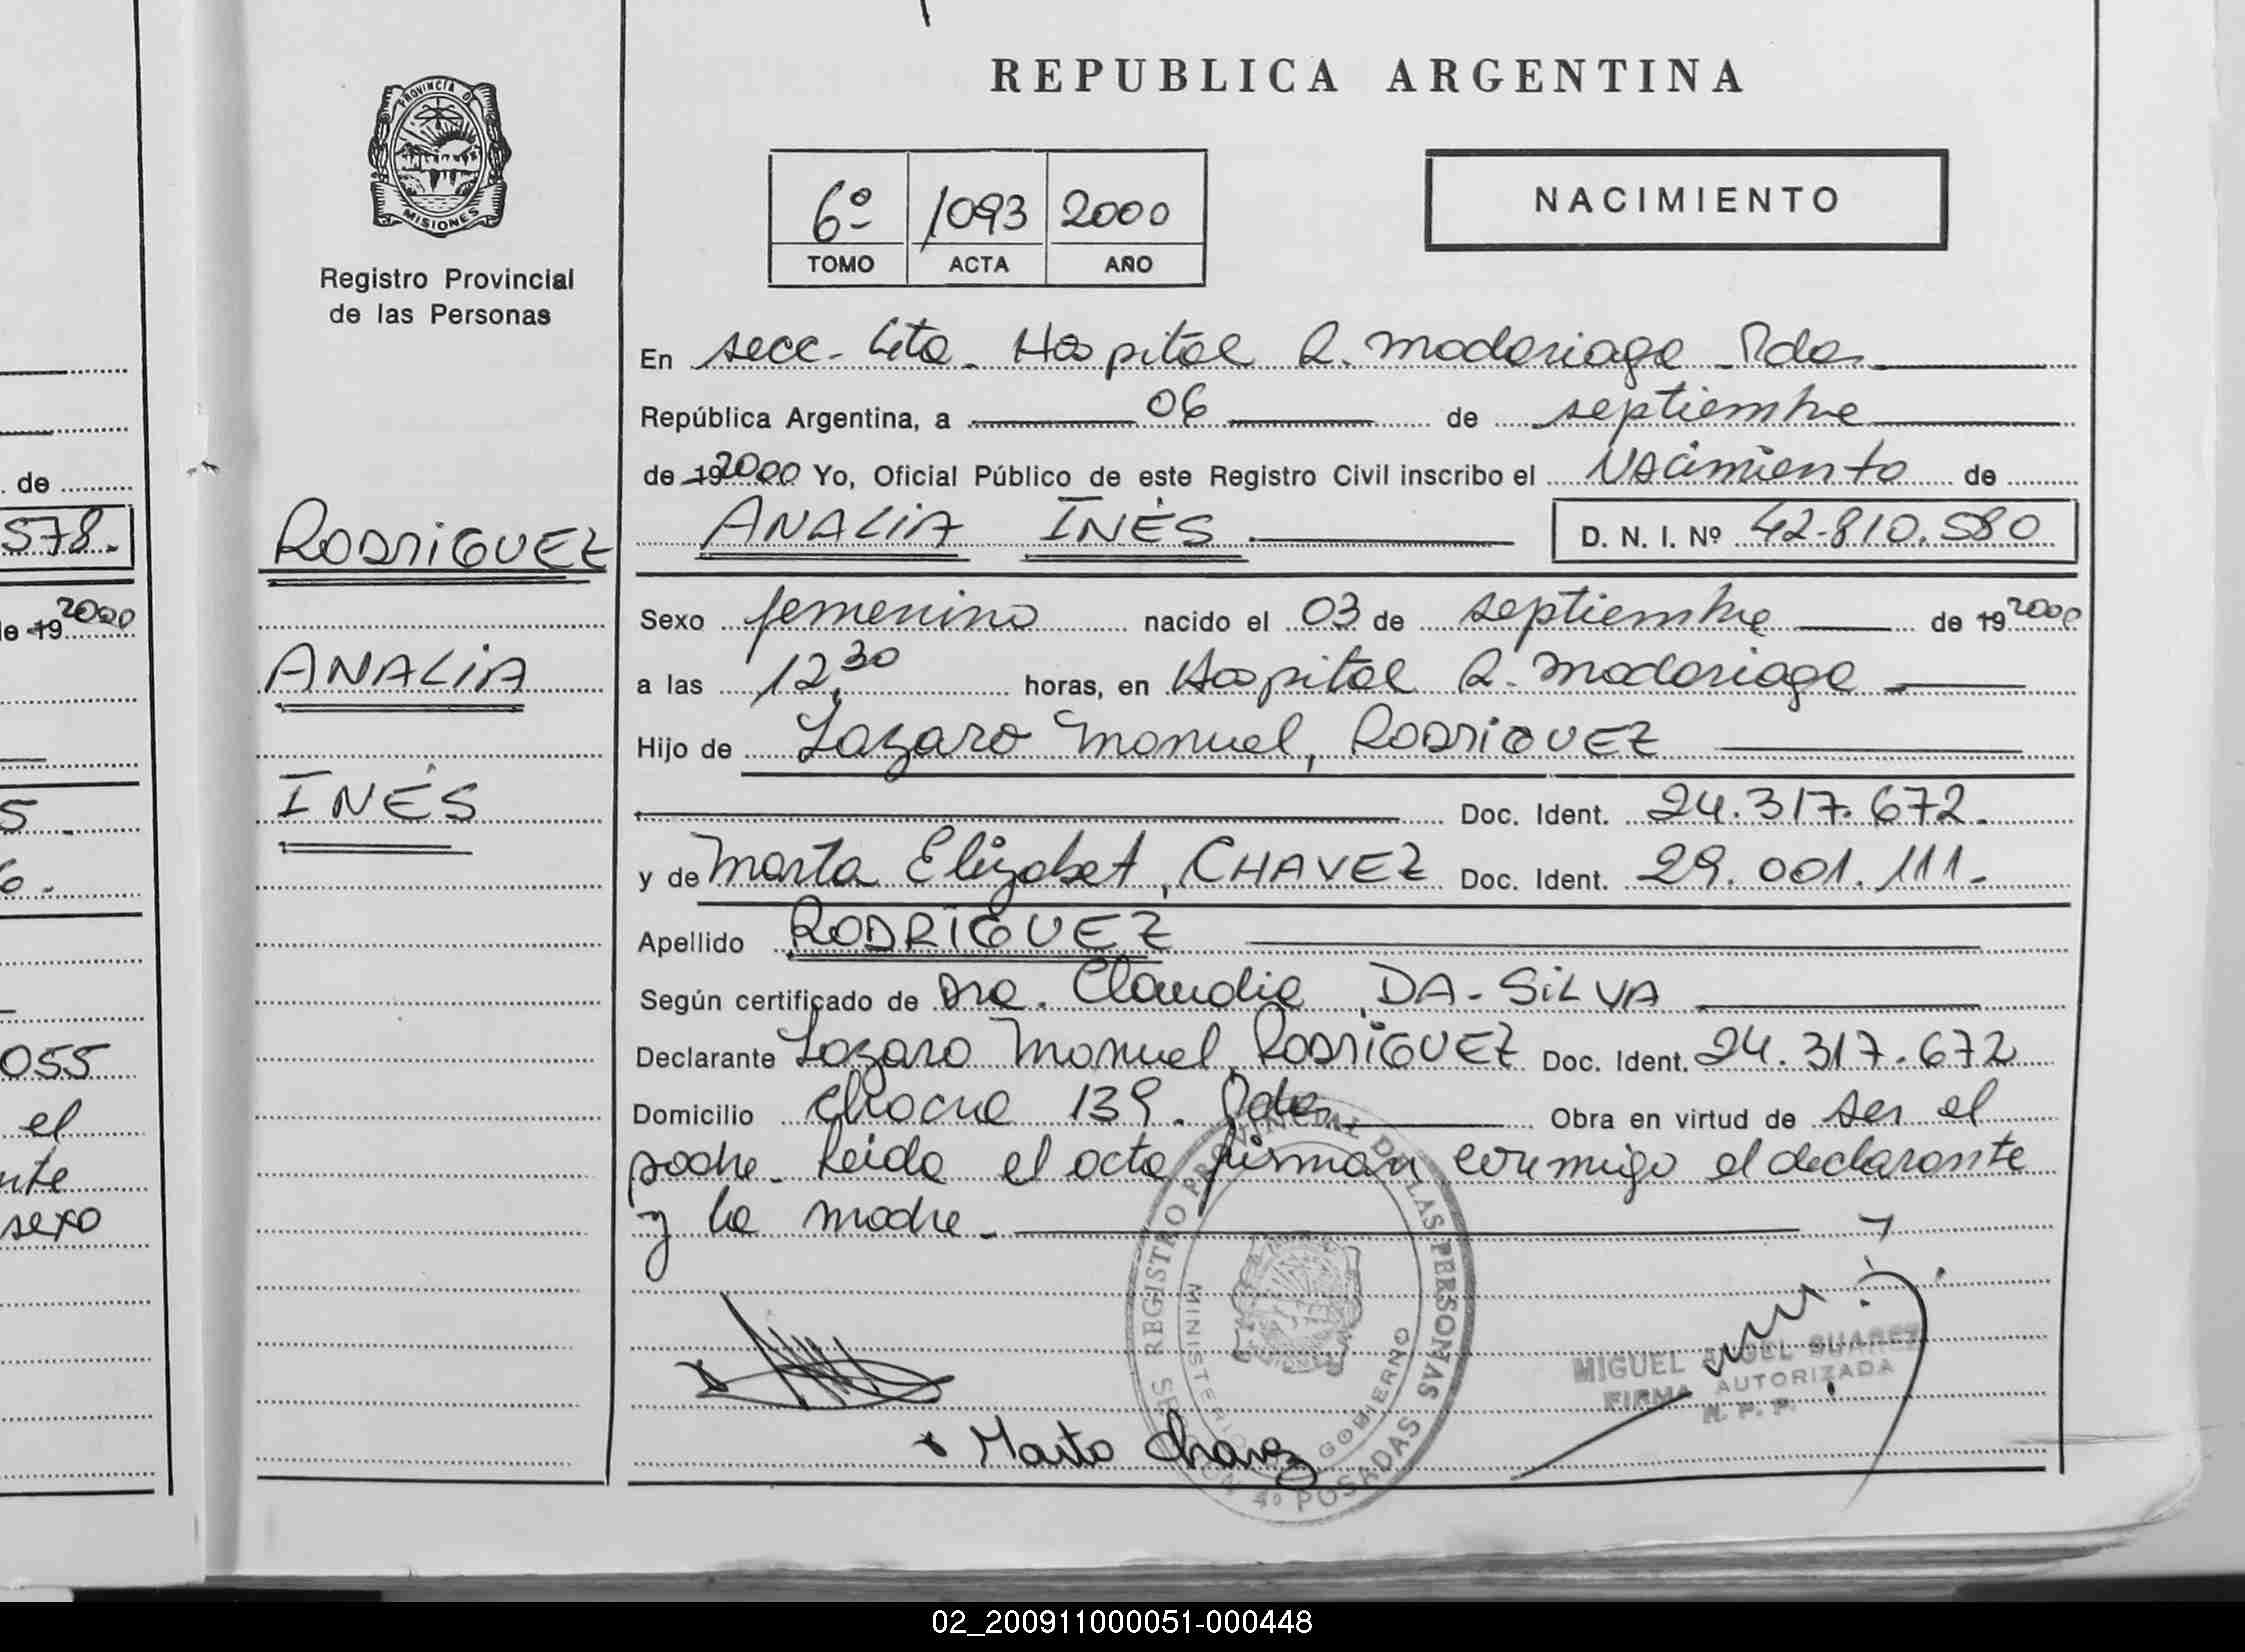 REPUBLICA ARGENTINA
PROVINCIA DE
MISIONES
Registro Provincial
de las Personas
6º 1093 2000
TOMO ACTA AÑO
NACIMIENTO
En secc. 4ta. Hospital R. Madariaga Pdas
República Argentina, a 06 de septiembre
de 19 2000 Yo, Oficial Público de este Registro Civil inscribo el Nacimiento de
ANALIA INÉS D. N. I. Nº 42.810.580
RODRIGUEZ
ANALIA
INÉS
Sexo femenino nacido el 03 de septiembre de 19 2000
a las 12,30 horas, en Hospital R. Madariaga
Hijo de Lazaro Manuel, RODRIGUEZ
Doc. Ident. 24.317.672.
y de Marta Elizabet, CHAVEZ Doc. Ident. 29.001.111.
Apellido RODRIGUEZ
Según certificado de Dra. Claudia, DA-SILVA
Declarante Lazaro Manuel, RODRIGUEZ Doc. Ident. 24.317.672
Domicilio Chacra 139. Pdas Obra en virtud de ser el
padre. Leida el acta firman conmigo el declarante
y la madre.
REGISTRO PROVINCIAL DE LAS PERSONAS
MINISTERIO GOBIERNO
4º POSADAS
MIGUEL ANGEL SUAREZ
FIRMA AUTORIZADA
R. P. P.
Marta Chavez
de
578.
de 19 2000
5.
6.
055
el
nte
sexo
02_200911000051-000448